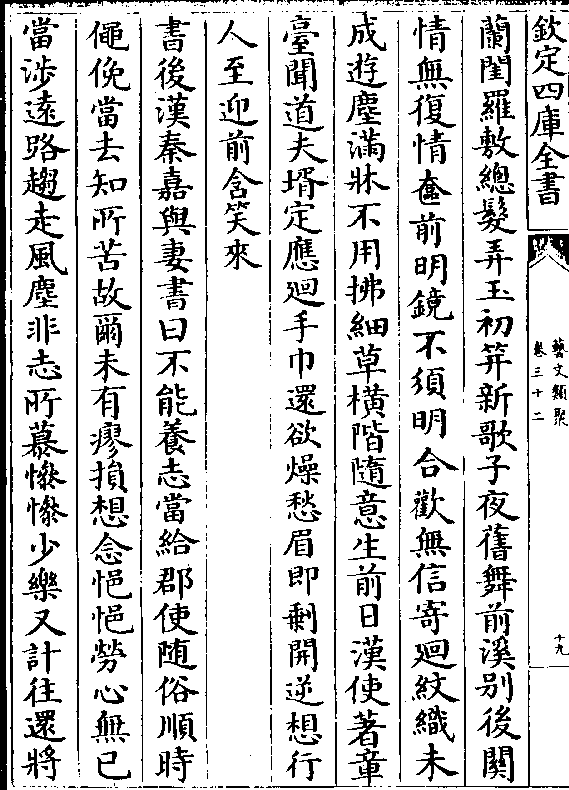 欽定四庫全書
藝文類聚
卷三十二
十九
蘭閨羅敷總髮弄玉初笄新歌子夜舊舞前溪别後關
情無復情奩前明鏡不須明合歡無信寄廻紋織未
成遊塵滿牀不用拂細草橫階隨意生前日漢使著章
臺聞道夫壻定應廻手巾還欲燥愁眉即剩開逆想行
人至迎前含笑來
書後漢秦嘉與妻書曰不能養志當給郡使随俗順時
僶俛當去知所苦故爾未有瘳損想念悒悒勞心無已
當涉逺路趨走風塵非志所慕慘慘少樂又計往還將